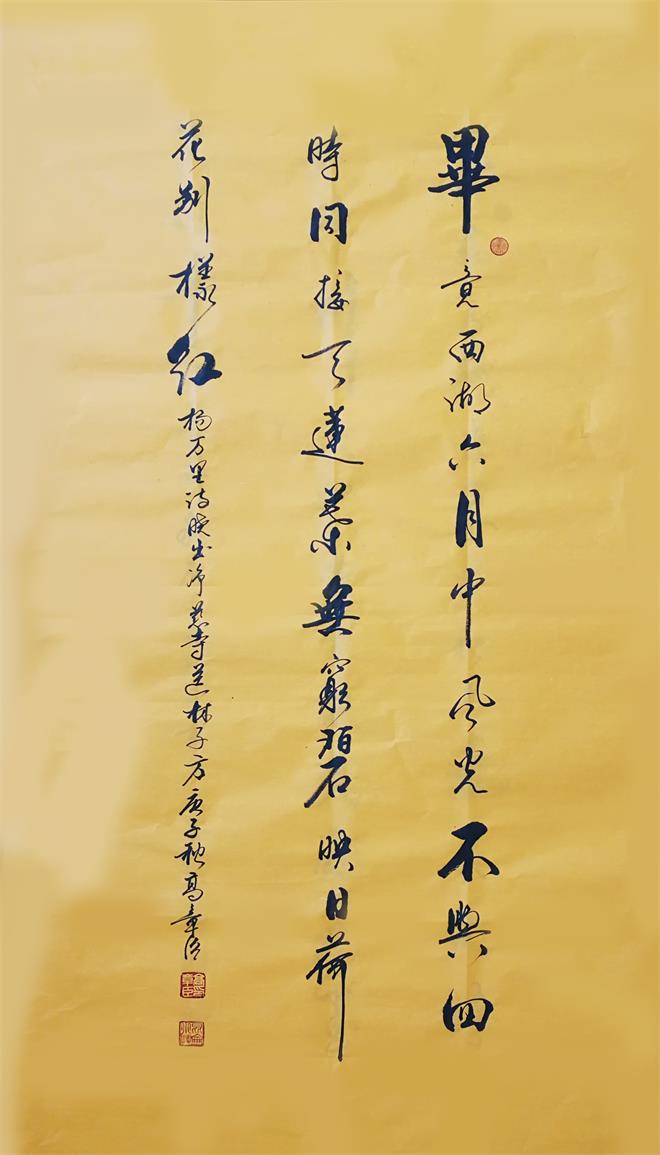 畢竟西湖六月中風光不與四
時同接天蓮葉無窮碧映日荷
花别樣紅
杨万里诗晓出净慈寺送林子方庚子秋高章